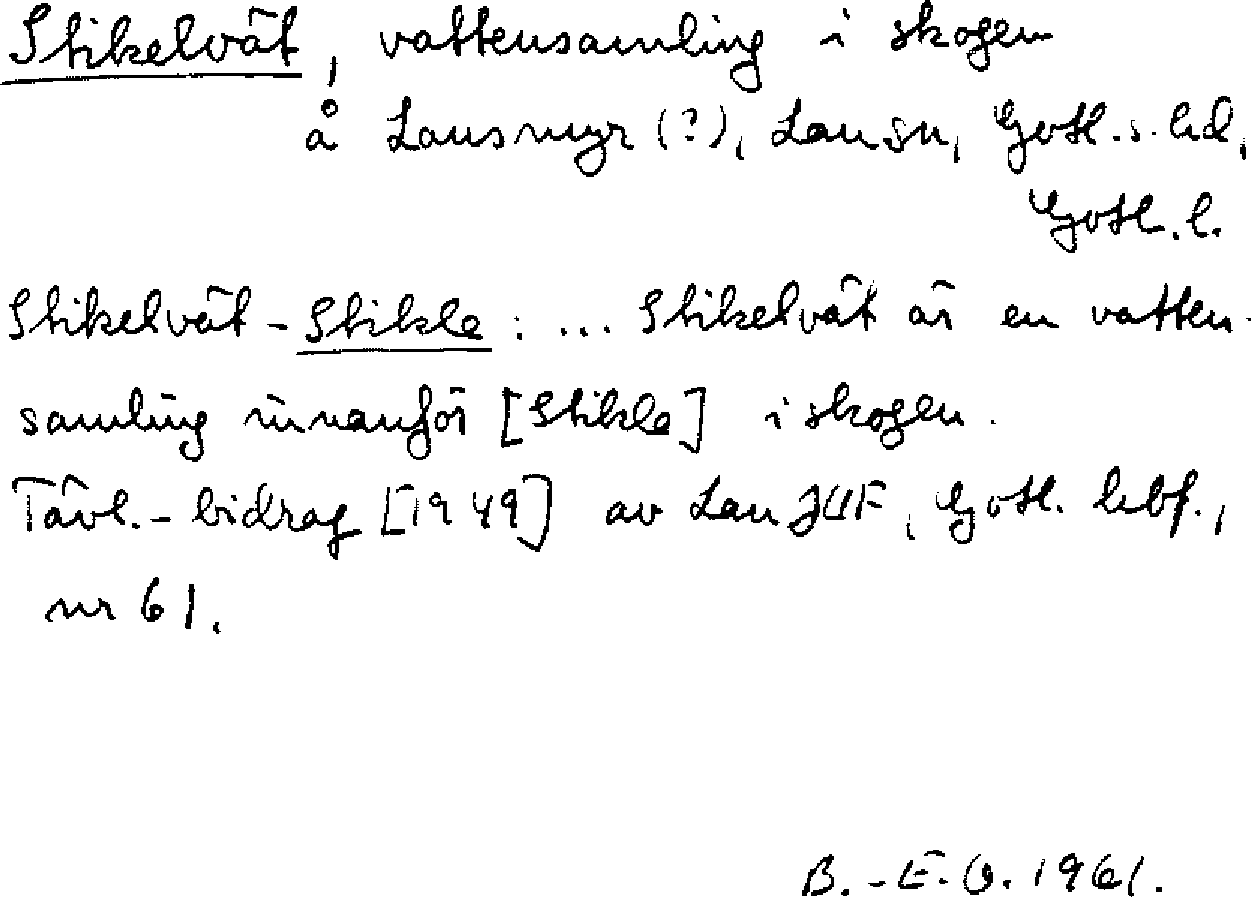 Stikelvät, vattensamling i skogen
å Lausmyr (?), Lau sn, Gotl. s. hd,
Gotl. l.
Stikelvät - Stikle : ... Stikelvät är en vatten-
samling innanför [Stikle] i skogen.
Tävl.-bidrag [1949] av Lau JUF, Gotl. hbf.,
nr 61.
B.-E.O. 1961.